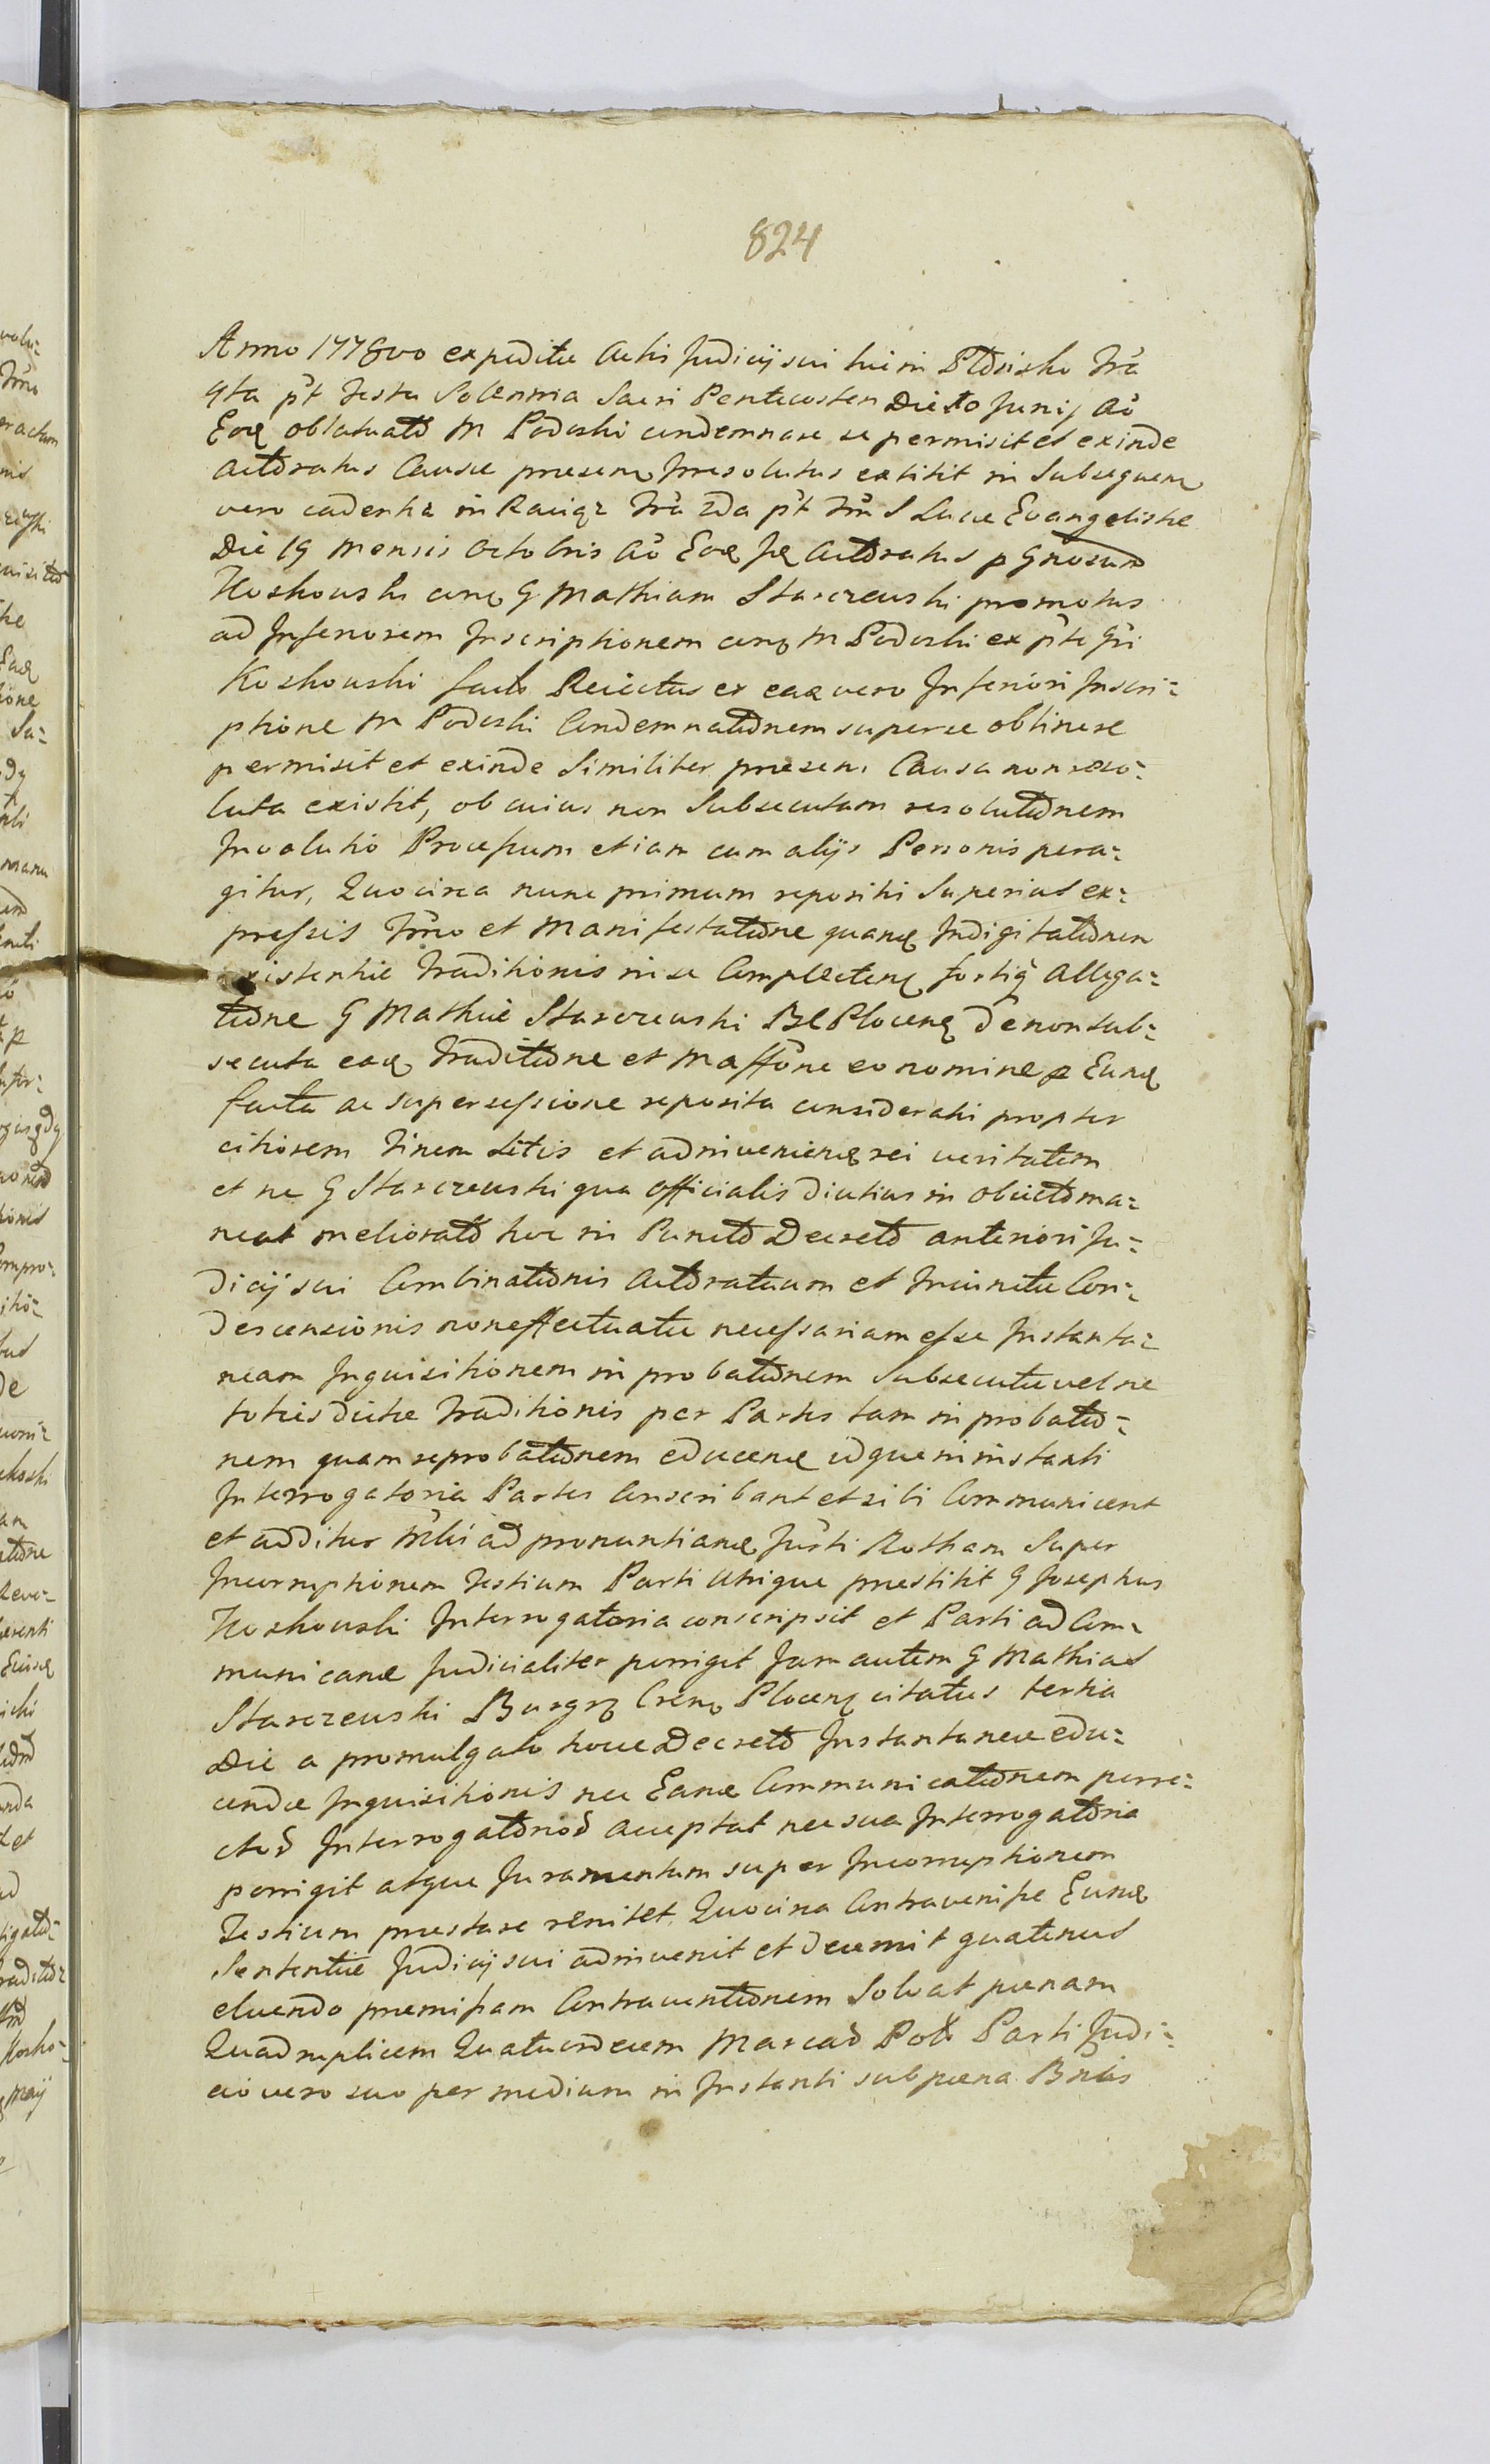 824
Anno 1778vo expeditae Actis Judicij sui hic in Ptdrisko Fra
4ta pt Festa Solennia Sacri Pentecosten Die 10 Junij Ao
Eoq oblatuatd M Podoski condemnare se permisit et exinde
Actdratus Causae praesenq Irresolutus extitit in Subsequenq
vero cadentia in Raciąz Fra 2da pt Fm S Lucae Evangelistae
Die 19 Mensis Octobris Ao Eoq Jq Actdratus p Gnosum
Koskowski cunq G Mathiam Starczewski promotus
ad Inferiorem Inscriptionem cunq M Podoski ex pte Gsi
Koskowski facta Reiectus ex eaq vero Inferiori Inscri-
ptione M Podoski Condemnatdnem super se obtinere
permisit et exinde Similiter praesens Causa non reso-
luta existit, ob cuius non Subsecutam resolutdnem
Involutio Processum etiam cum alijs Personis pera-
gitur, Quocirca nunc primum repositi Superius ex-
pressis Fmo et Manifestatdne quanq Indigitatdnem
existentiae Traditionis in se Complectenq fortiq Allega-
tdne G Mathiae Starczewski BG Plocenq de non sub-
secuta eaq Traditdne et Maffone eo nomine p Eunq
facta ac supersessione reposita considerati propter
citiorem Finem Litis et adinvenienq rei veritatem
et ne G Starczewski qua Officialis diutius in obiectd ma-
neat melioratd hoc in Punctd Decretd anteriori Ju-
dicij sui Combinatdnis Actdratuum et Inimitae Con-
descensionis non effectuatae necessariam esse Instanta-
neam Inquisitionem in probatdnem Subsecutae vel ne
toties dictae Traditionis per Partes tam in probatd-
nem quam reprobatdnem educenq idque in instanti
Interrogatoria Partes Conscribant et sibi Communicent
et additur Mlis ad pronuntianq Jurti Rotham Super
Incorruptionem Testium Parti Utrique praestitit G Josephus
Koskowski Interrogatoria conscripsit et Parti ad Com-
municanq Judicialiter porrigit Jam autem G Mathias
Starczewski Burgrq Crenq Plocenq citatus tertia
Die a promulgato hocce Decretd Instantaneae edu-
cendae Inquisitionis nec Eanq Communicatdnem porre-
ctod Interrogatdriod acceptat nec sua Interrogatdria
porrigit atque Juramentum super Incorruptionem
Testium praestare renitet. Quocirca Contravenisse Eunq
Sententiae Judicij sui adinvenit et decernit quatenus
eluendo praemissam Contraventdnem Solvat paenam
Quadruplicem Quatuordecem Marcad Pol Parti Judi-
cio vero suo per medium in Instanti sub paena Bnitis